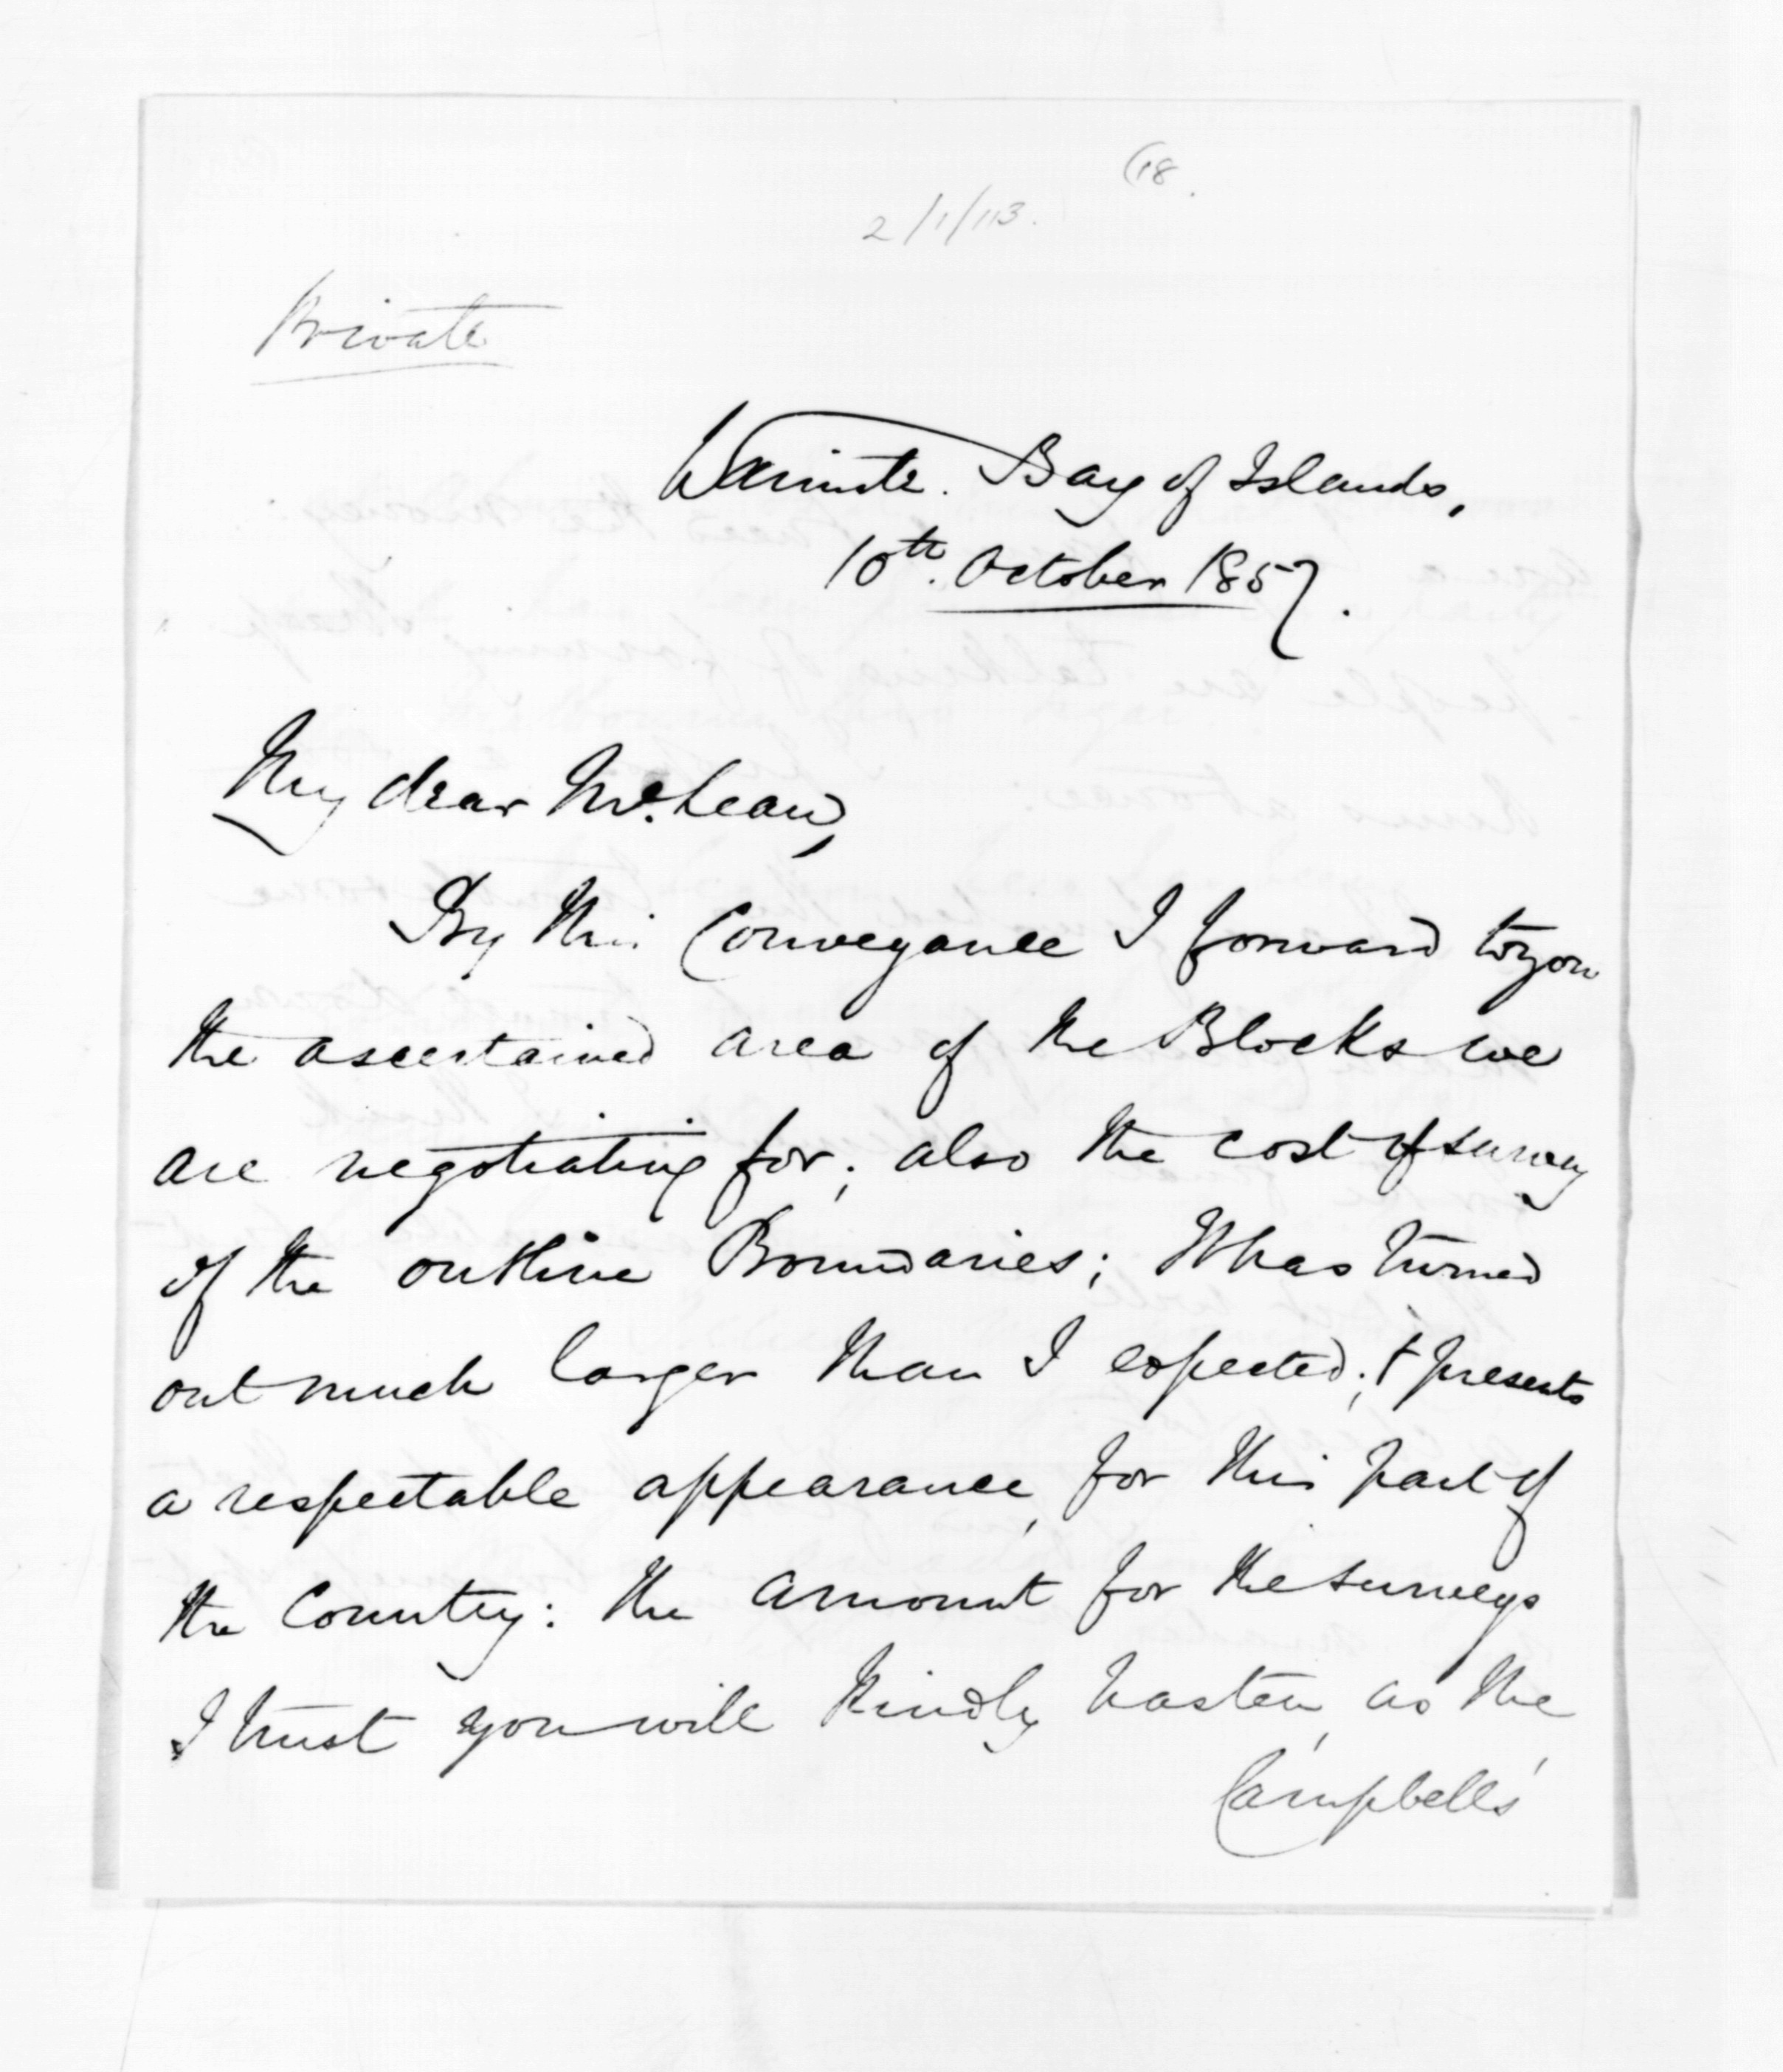 (18.
2/1/113.
Private
Waimate. Bay of Islands,
10th. October 1857.
My dear McLean,
By this Conveyance I forward to you
the ascertained area of the Blocks we
are negotiating for; also the cost of survey
of the outline Boundaries; It has turned
out much larger than I expected; & presents
a respectable appearance, for this part of
the Country: the amount for the surveys
I trust you will kindly hasten, as the
Campbells'